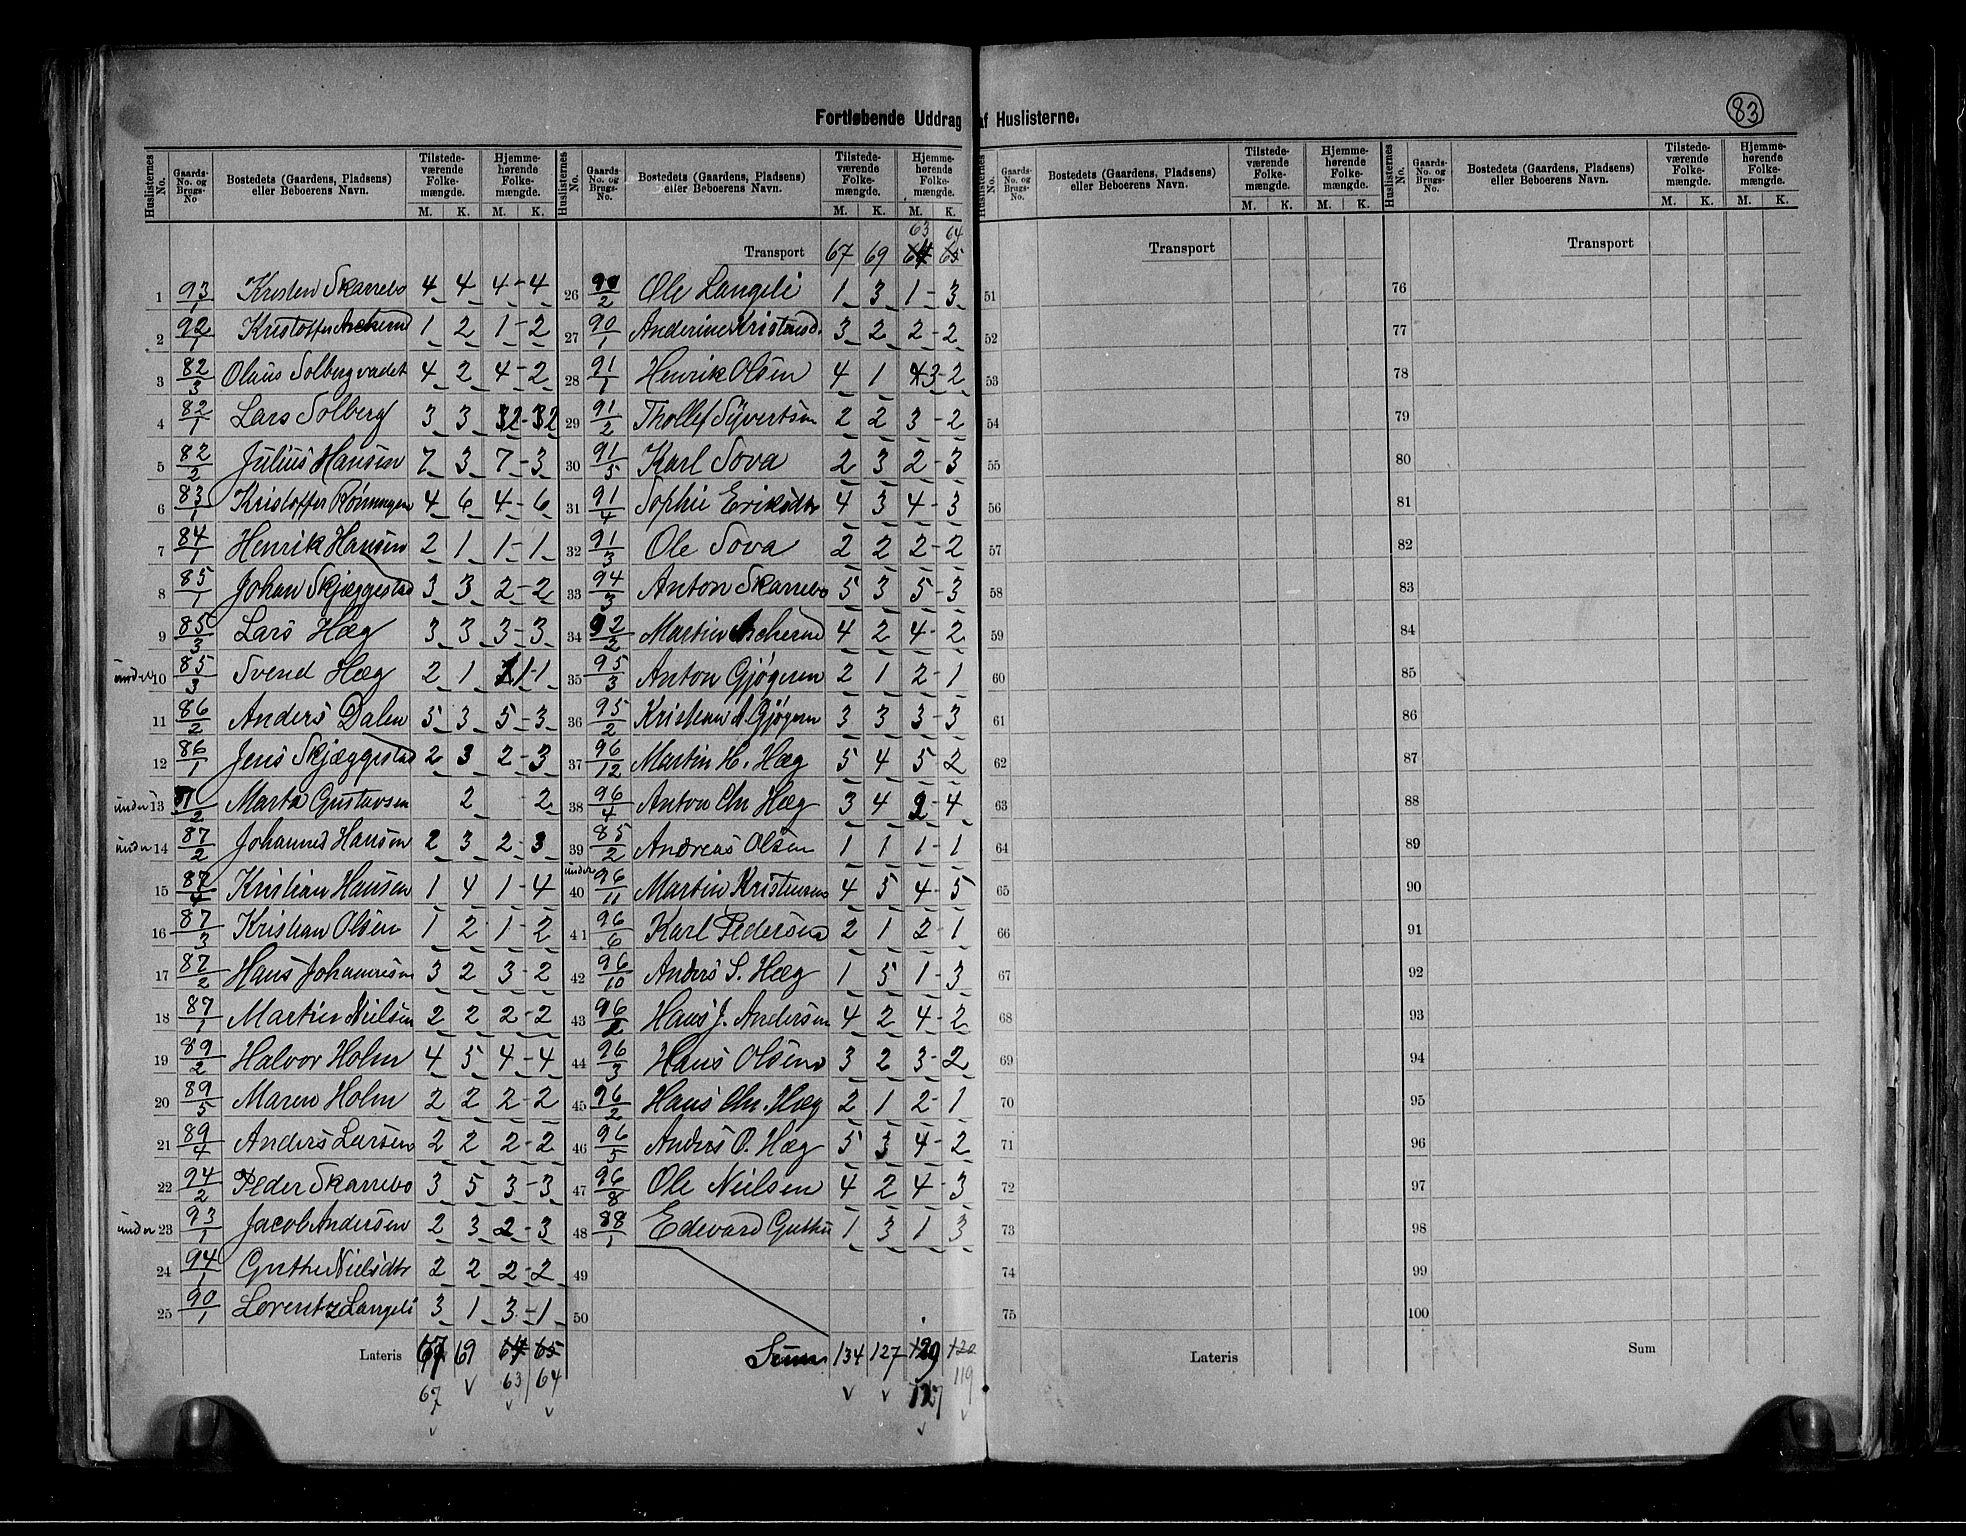 Fortløbende Uddrag af Huslisterne.
83
Huslisternes No. Gaards-No. og Brugs-No Bostedets (Gaardens, Pladsens) eller Beboerens Navn. Tilstedeværende Folkemængde. M. K. Hjemmehørende Folkemængde. M. K.
1 93/1 Kristen Skarrebo 4 4 4-4
2 92/1 Kristoffer 1 2 1-2
3 82/3 Olaus Solbergvadet 4 2 4-2
4 82/1 Lars Solberg 3 3 32-32
5 82/2 Julius Hansen 7 3 7-3
6 83/1 Kristoffer Rønningen 4 6 4-6
7 84/1 Henrik Hansen 2 1 1-1
8 85/1 Johan Skjæggestad 3 3 2-2
9 85/3 Lars Hæg 3 3 3-3
under 10 85/3 Svend Hæg 2 1 1-1
11 86/2 Anders Dalen 5 3 5-3
12 86/1 Jens Skjæggestad 2 3 2-3
under 13 87/2 Marta Gustavsen 2 2
under 14 87/2 Johannes Hansen 2 3 2-3
15 87/4 Kristian Hansen 1 4 1-4
16 87/3 Kristian Olsen 1 2 1-2
17 87/2 Hans Johannesen 3 2 3-2
18 87/1 Martin Nielsen 2 2 2-2
19 89/2 Halvor Holm 4 5 4-4
20 89/5 Maren Holm 2 2 2-2
21 89/4 Anders Larsen 2 2 2-2
22 94/2 Peder Skarrebo 3 5 3-3
under 23 93/1 Jacob Andersen 2 3 2-3
24 94/1 Gruthe Nielsdtr 2 2 2-2
25 90/1 Lorentz Langeli 3 1 3-1
Lateris 67 69 64 65
67 63 64
Huslisternes No. Gaards-No. og Brugs-No. Bostedets (Gaardens, Pladsens) eller Beboerens Navn. Tilstedeværende Folkemængde. M. K. Hjemmehørende Folkemængde. M. K.
63 64
Transport 67 69 64 65
26 90/2 Ole Langeli 1 3 1-3
27 90/1 Anderine Kristensd. 3 2 2-2
28 91/1 Henrik Olsen 4 1 43-2
29 91/2 Thollef Syvertsen 2 2 3-2
30 91/5 Karl Sova 2 3 2-3
31 91/4 Sophie Eriksdtr 4 3 4-3
32 91/3 Ole Sova 2 2 2-2
33 94/3 Anton Skarrebo 5 3 5-3
34 92/2 Martin 4 2 4-2
35 95/3 Anton Gjøgeren 2 1 2-1
36 95/2 Kristian A Gjøgeren 3 3 3-3
37 96/12 Martin H. Hæg 5 4 5-2
38 96/4 Anton Chr Hæg 3 4 2-4
39 85/2 Andreas Olsen 1 1 1-1
under 40 96/11 Martin Kristensen 4 5 4-5
41 96/6 Karl Pedersen 2 1 2-1
42 96/10 Anders S. Hæg 1 5 1-3
43 96/2 Hans J. Andersen 4 2 4-2
44 96/3 Hans Olsen 3 2 3-2
45 96/2 Hans Chr. Hæg 2 1 2-1
46 96/5 Anders O. Hæg 5 3 4-2
47 96/8 Ole Nielsen 4 2 4-3
48 88/1 Edevard Guthu 1 3 1 3
49
50
Sum 134 127 129 120
127 119
Huslisternes No. Gaards-No. og Brugs-No. Bostedets (Gaardens, Pladsens) eller Beboerens Navn. Tilstedeværende Folkemængde. M. K. Hjemmehørende Folkemængde. M. K.
Transport
51
52
53
54
55
56
57
58
59
60
61
62
63
64
65
66
67
68
69
70
71
72
73
74
75
Lateris
Huslisternes No. Gaards-No. og Brugs-No. Bostedets (Gaardens, Pladsens) eller Beboerens Navn. Tilstedeværende Folkemængde. M. K. Hjemmehørende Folkemængde. M. K.
Transport
76
77
78
79
80
81
82
83
84
85
86
87
88
89
90
91
92
93
94
95
96
97
98
99
100
Sum